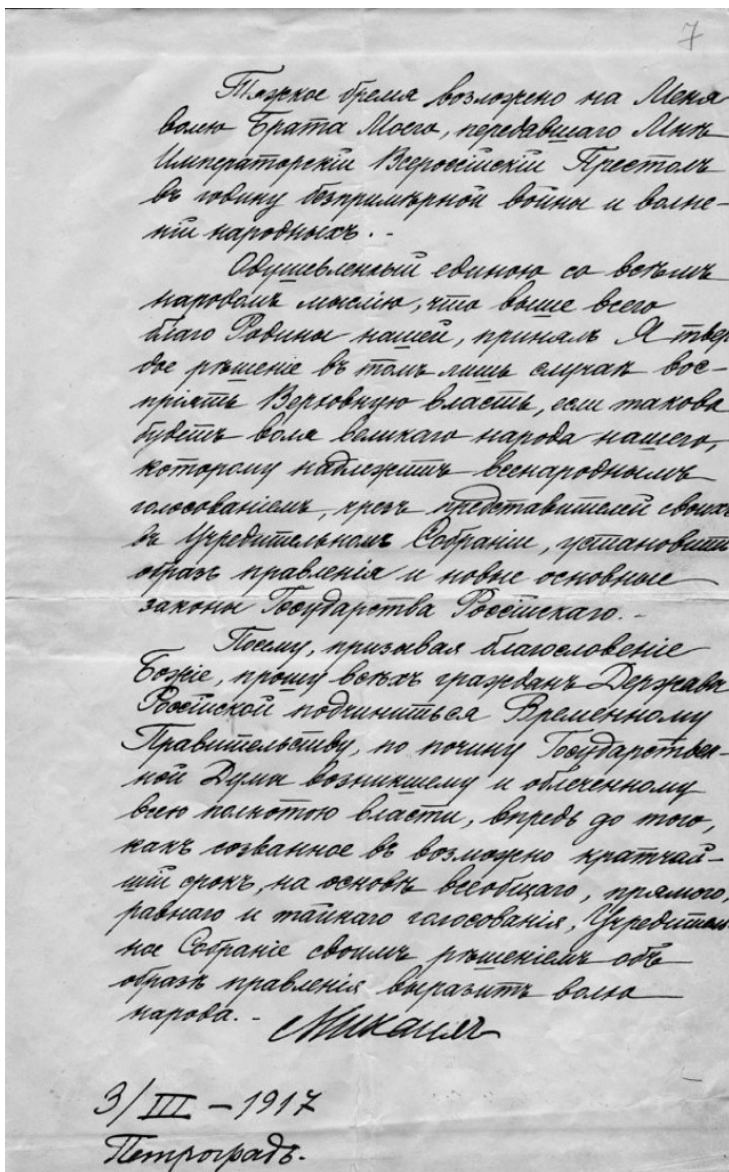 7
Тяжкое бремя возложено на Меня
волею Брата Моего, передавшаго Мнѣ
Императорскій Всероссійскій Престолъ
въ годину безпримѣрной войны и волне-
ній народныхъ.-
Одушевленный единою со всѣмъ
народомъ мыслію, что выше всего
благо Родины нашей, принялъ Я твер
дое рѣшеніе въ томъ лишь случаѣ вос-
пріять Верховную власть, если такова
будетъ воля великаго народа нашего,
которому надлежитъ всенароднымъ
голосованіемъ, чрезъ представителей своихъ
въ Учредительномъ Собраніи, установить
образъ правленія и новые основные
законы Государства Россійскаго.-
Посему, призывая благословеніе
Божіе, прошу всѣхъ гражданъ Державы
Россійской подчиниться Временному
Правительству, по почину Государствен-
ной Думы возникшему и облеченному
всею полнотою власти, впредь до того,
какъ созванное въ возможно кратчай-
шій срокъ, на основѣ всеобщаго, прямого,
равнаго и тайнаго голосованія, Учредитель-
ное Собраніе своимъ рѣшеніемъ объ
образѣ правленія выразитъ волю
народа.-
Михаилъ
3/III - 1917
Петроградъ.